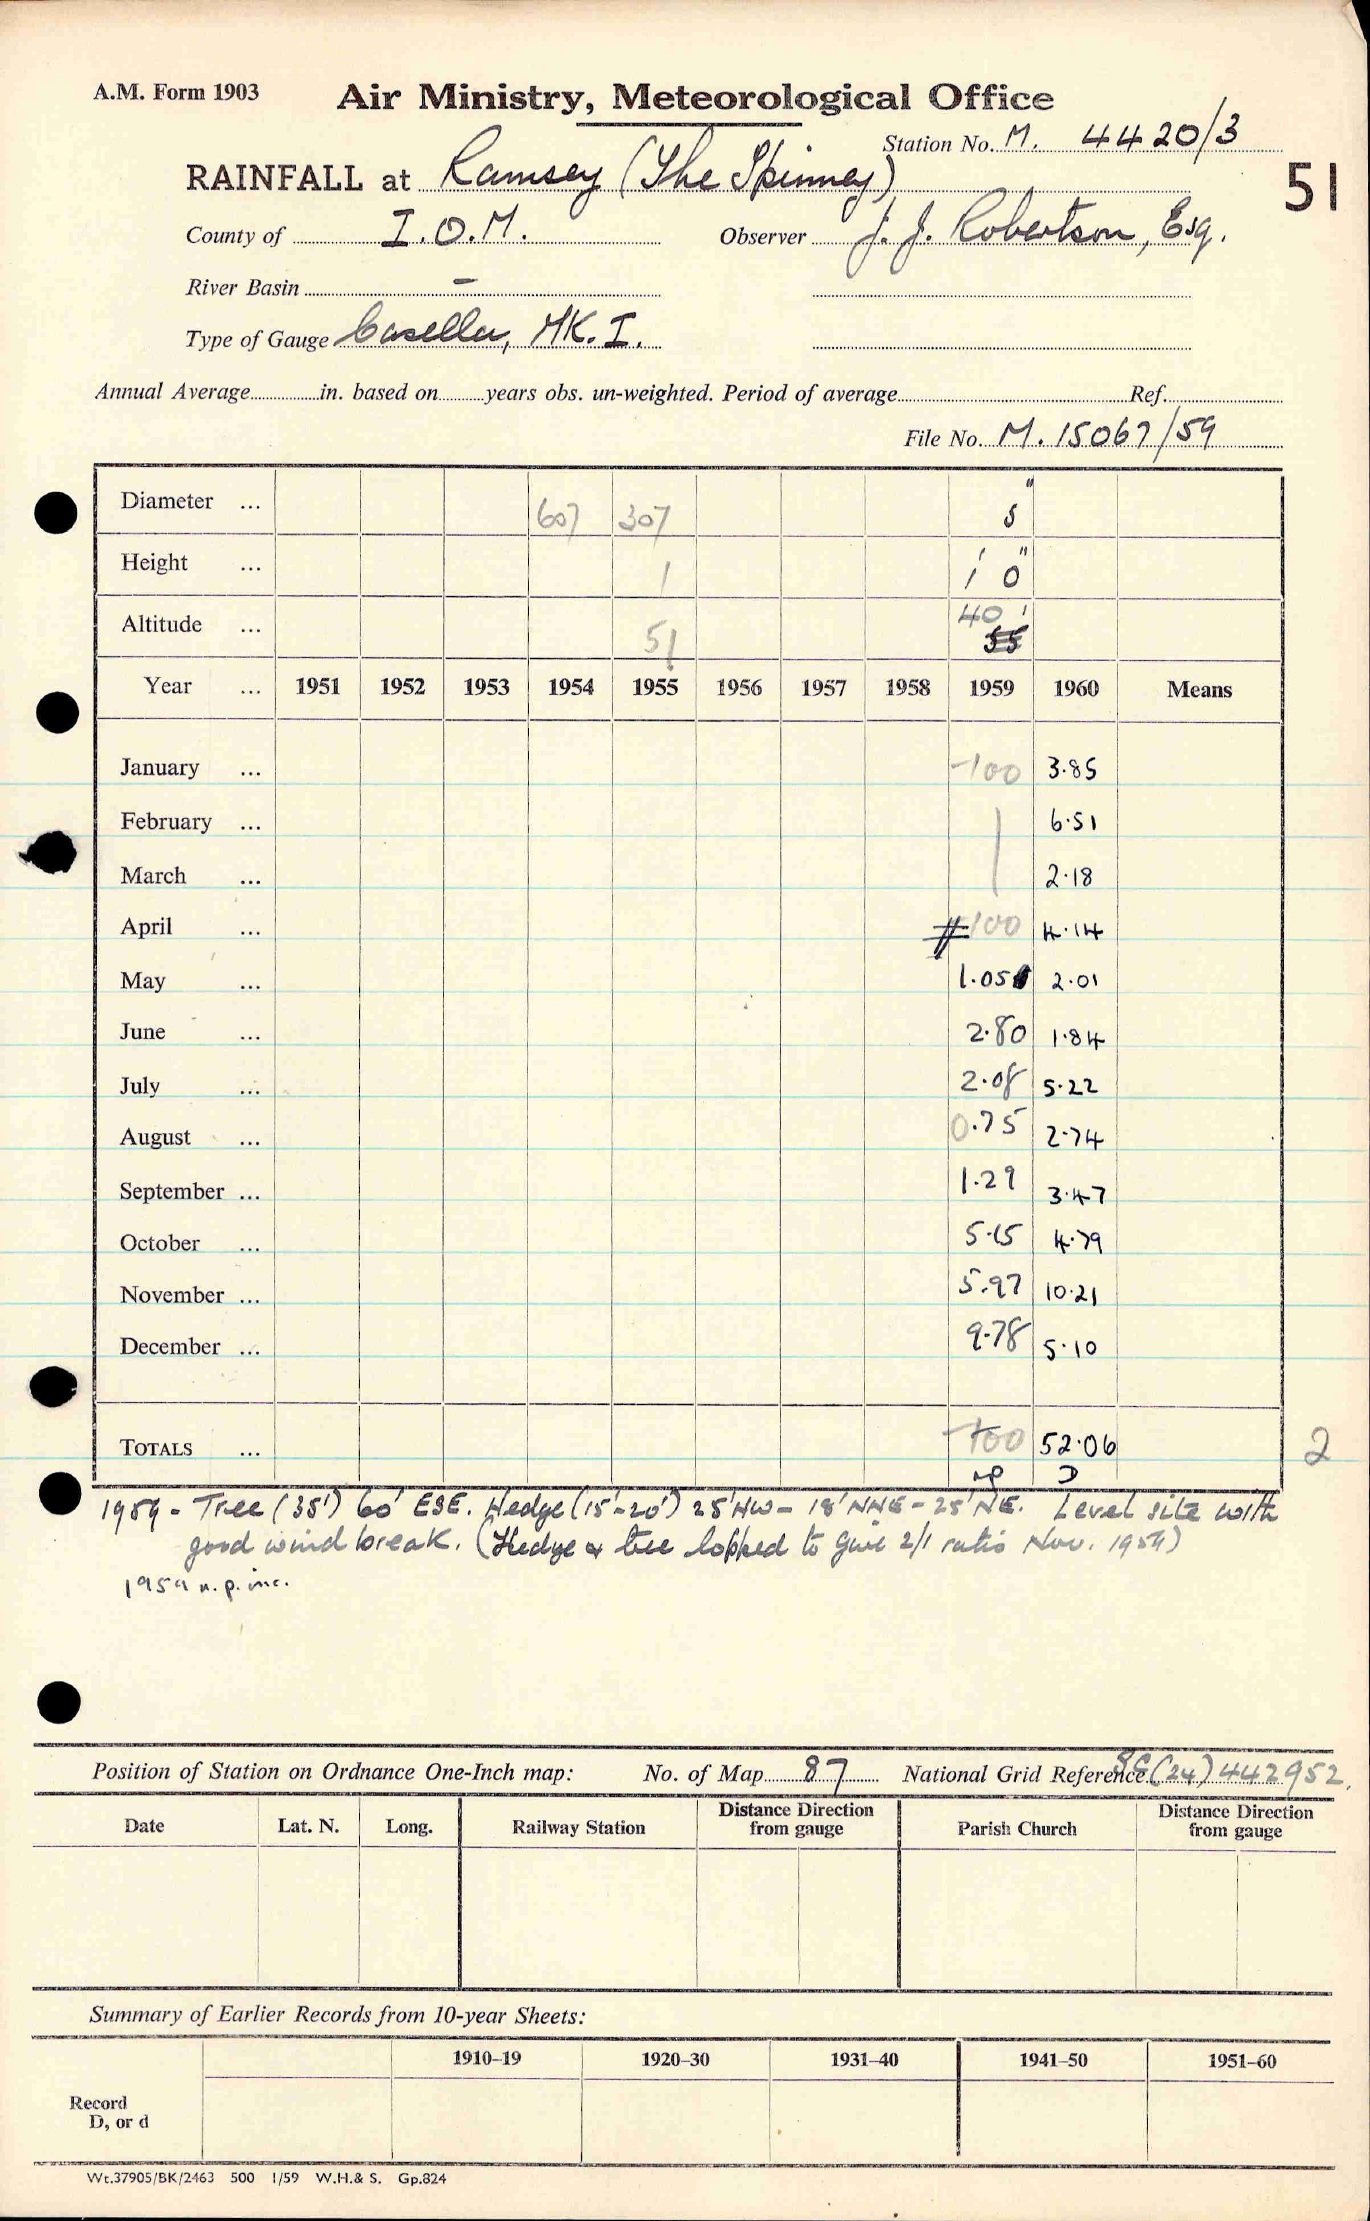 A.M. Form 1903 Air Ministry, Meteorological Office
Station No. M. 4420/3
RAINFALL at Ramsey (The Spinney) 51
County of I.O.M. Observer J. J. Robertson, Esq.
River Basin –
Type of Gauge Casella, MK. I.
Annual Average in. based on years obs. un-weighted. Period of average Ref.
File No. M. 15067/59
Diameter ... 607 307 5"
Height ... 1 1' 0"
Altitude ... 51 40' 55
Year ... 1951 1952 1953 1954 1955 1956 1957 1958 1959 1960 Means
January ... -100 3.85
February ... 6.51
March ... 2.18
April ... -100 4.14
May ... 1.05 2.01
June ... 2.80 1.84
July ... 2.08 5.22
August ... 0.75 2.74
September ... 1.29 3.47
October ... 5.15 4.79
November ... 5.97 10.21
December ... 9.78 5.10
TOTALS ... -100 52.06 2
np D
1959 - Tree (35') 60' ESE. Hedge (15'-20') 25' NW - 18' NNE - 25' NE. Level site with
good wind break. (Hedge & tree lopped to give 2/1 ratio Nov. 1959)
1959 n.p. inc.
Position of Station on Ordnance One-Inch map: No. of Map 87 National Grid Reference (24) 442952.
Date Lat. N. Long. Railway Station Distance Direction from gauge Parish Church Distance Direction from gauge
Summary of Earlier Records from 10-year Sheets:
1910–19 1920–30 1931–40 1941–50 1951–60
Record
D, or d
Wt.37905/BK/2463 500 1/59 W.H.& S. Gp.824